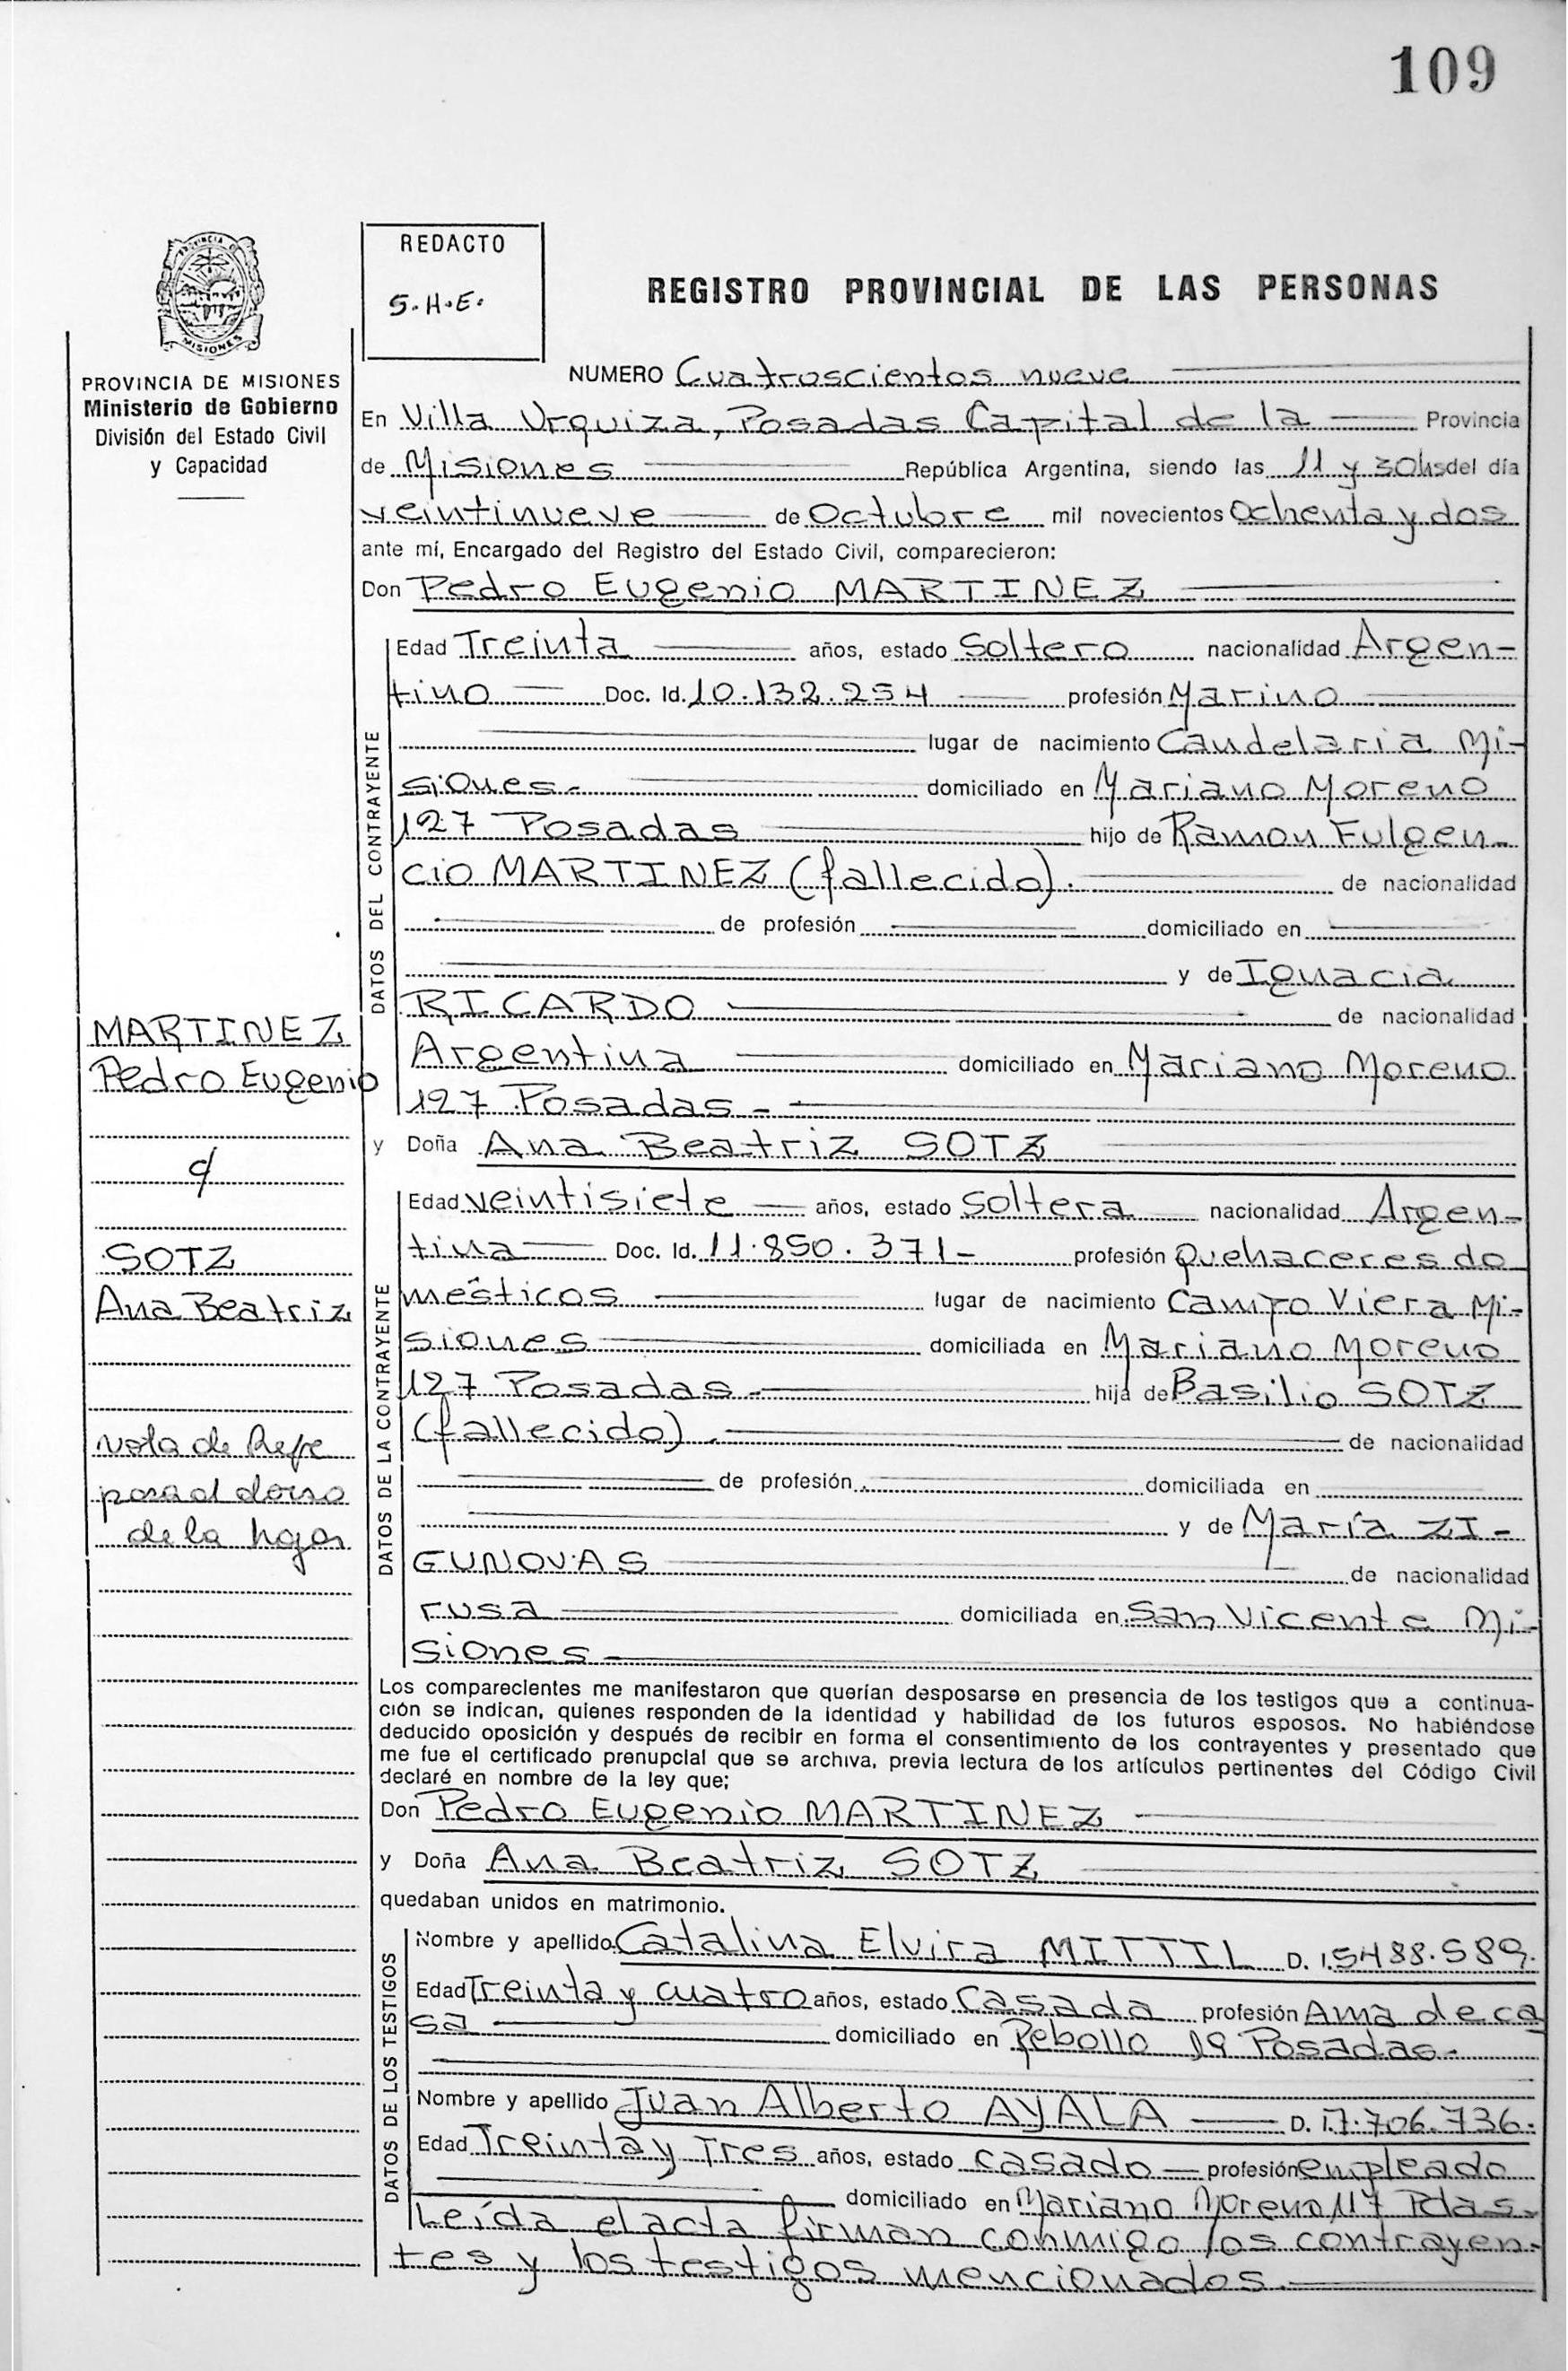 109
PROVINCIA DE
MISIONES
REDACTO
S.H.E.
REGISTRO PROVINCIAL DE LAS PERSONAS
PROVINCIA DE MISIONES
Ministerio de Gobierno
División del Estado Civil
y Capacidad
NUMERO Cuatroscientos nueve
En Villa Urquiza, Posadas Capital de la Provincia
de Misiones República Argentina, siendo las 11 y 30hs del día
veintinueve de Octubre mil novecientos Ochenta y dos
ante mí, Encargado del Registro del Estado Civil, comparecieron:
Don Pedro Eugenio MARTINEZ
DATOS DEL CONTRAYENTE
Edad Treinta años, estado Soltero nacionalidad Argen-
tino Doc. Id. 10.132.254 profesión Marino
lugar de nacimiento Candelaria Mi-
siones.- domiciliado en Mariano Moreno
127 Posadas hijo de Ramon Fulgen-
cio MARTINEZ (fallecido). de nacionalidad
de profesión domiciliado en
y de Ignacia
RICARDO de nacionalidad
Argentina domiciliado en Mariano Moreno
127 Posadas -
y Doña Ana Beatriz SOTZ
DATOS DE LA CONTRAYENTE
Edad veintisiete años, estado Soltera nacionalidad Argen-
tina Doc. Id. 11.850.371- profesión Quehaceres do
mésticos lugar de nacimiento Campo Viera Mi-
siones domiciliada en Mariano Moreno
127 Posadas - hija de Basilio SOTZ
(fallecido). de nacionalidad
de profesión domiciliada en
y de María ZI-
GUNOVAS de nacionalidad
rusa domiciliada en San Vicente Mi-
siones
Los comparecientes me manifestaron que querían desposarse en presencia de los testigos que a continua-
ción se indican, quienes responden de la identidad y habilidad de los futuros esposos. No habiéndose
deducido oposición y después de recibir en forma el consentimiento de los contrayentes y presentado que
me fue el certificado prenupcial que se archiva, previa lectura de los artículos pertinentes del Código Civil
declaré en nombre de la ley que;
Don Pedro Eugenio MARTINEZ
y Doña Ana Beatriz SOTZ
quedaban unidos en matrimonio.
DATOS DE LOS TESTIGOS
Nombre y apellido Catalina Elvira MITTIL D. I. 5488.589.
Edad Treinta y cuatro años, estado Casada profesión Ama de ca
sa domiciliado en Rebollo 19 Posadas.-
Nombre y apellido Juan Alberto AYALA D. I. 7.706.736.
Edad Treinta y Tres años, estado casado profesión empleado
domiciliado en Mariano Moreno 117 Pdas.
Leída el acta firman conmigo los contrayen-
tes y los testigos mencionados.
MARTINEZ
Pedro Eugenio
c/
SOTZ
Ana Beatriz
nota de Refe
para al dorso
de la hoja